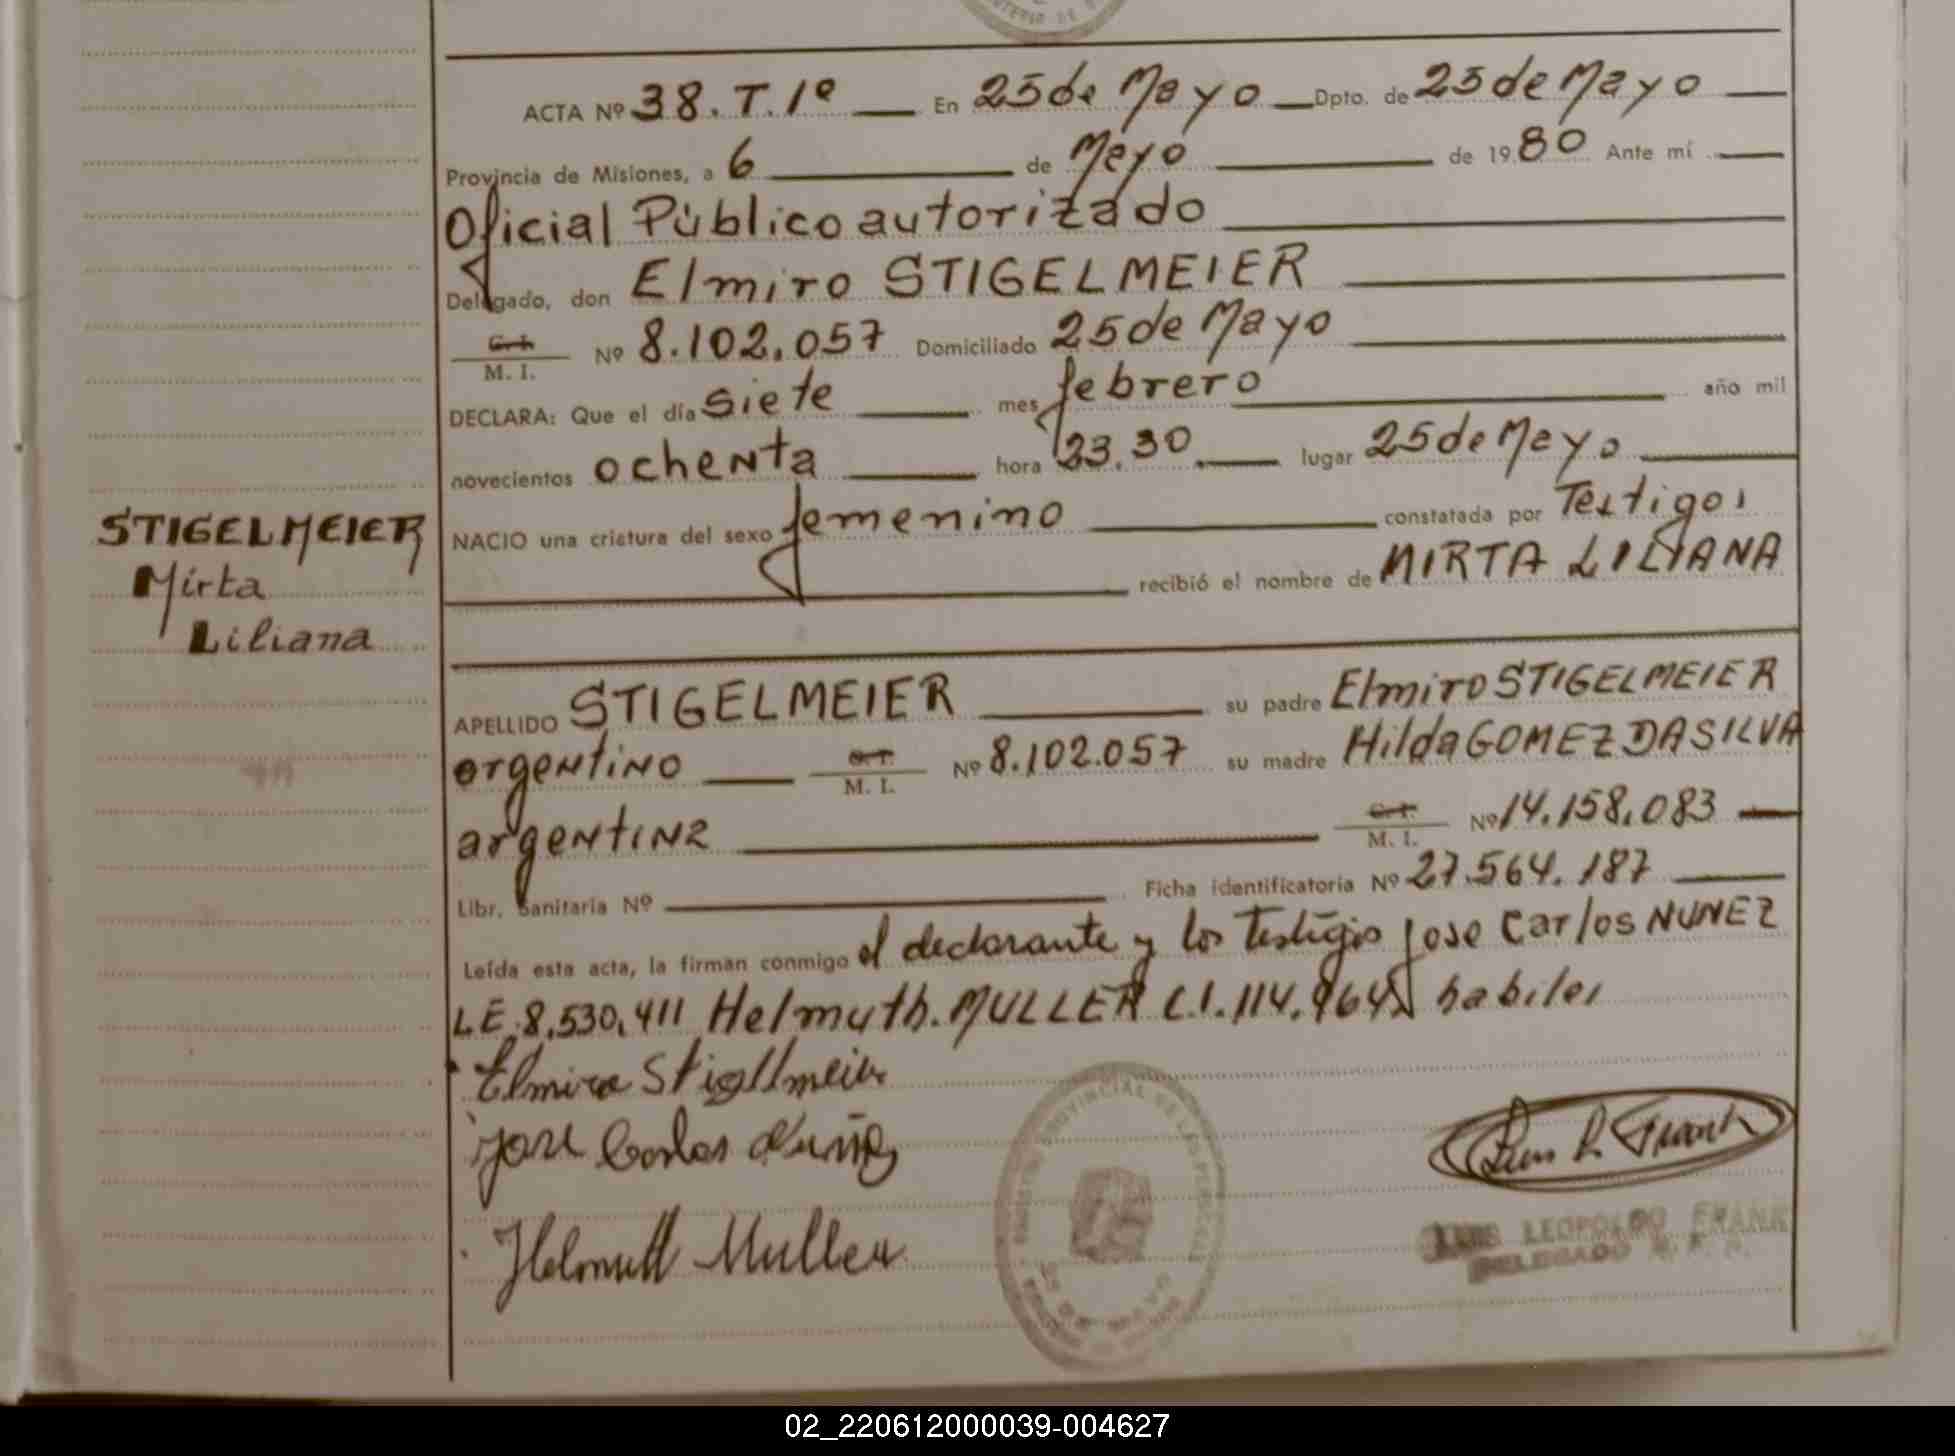 ACTA Nº 38. T. 1º En 25 de Mayo Dpto. de 25 de Mayo
Provincia de Misiones, a 6 de Mayo de 19 80 Ante mí
Oficial Público autorizado
Delegado, don Elmiro STIGELMEIER
C. I. M. I. Nº 8.102.057 Domiciliado 25 de Mayo
DECLARA: Que el día siete mes febrero año mil
novecientos ochenta hora 23.30 lugar 25 de Mayo
NACIO una criatura del sexo femenino constatada por Testigos
recibió el nombre de MIRTA LILIANA
STIGELMEIER
Mirta
Liliana
APELLIDO STIGELMEIER su padre Elmiro STIGELMEIER
argentino C. I. M. I. Nº 8.102.057 su madre Hilda GOMEZ DA SILVA
argentina C. I. M. I. Nº 14.158.083
Libr. Sanitaria Nº Ficha identificatoria Nº 27.564.187
Leída esta acta, la firman conmigo el declarante y los testigos Jose Carlos NUNEZ
L.E. 8.530.411 Helmuth. MULLER C.I. 114. habiles
Elmiro Stigellmeier
Jose Carlos Nuñez
Helmuth Muller
Luis L. Frank
LUIS LEOPOLDO FRANK
DELEGADO
REGISTRO PROVINCIAL DE LAS PERSONAS
25 DE MAYO
02_220612000039-004627